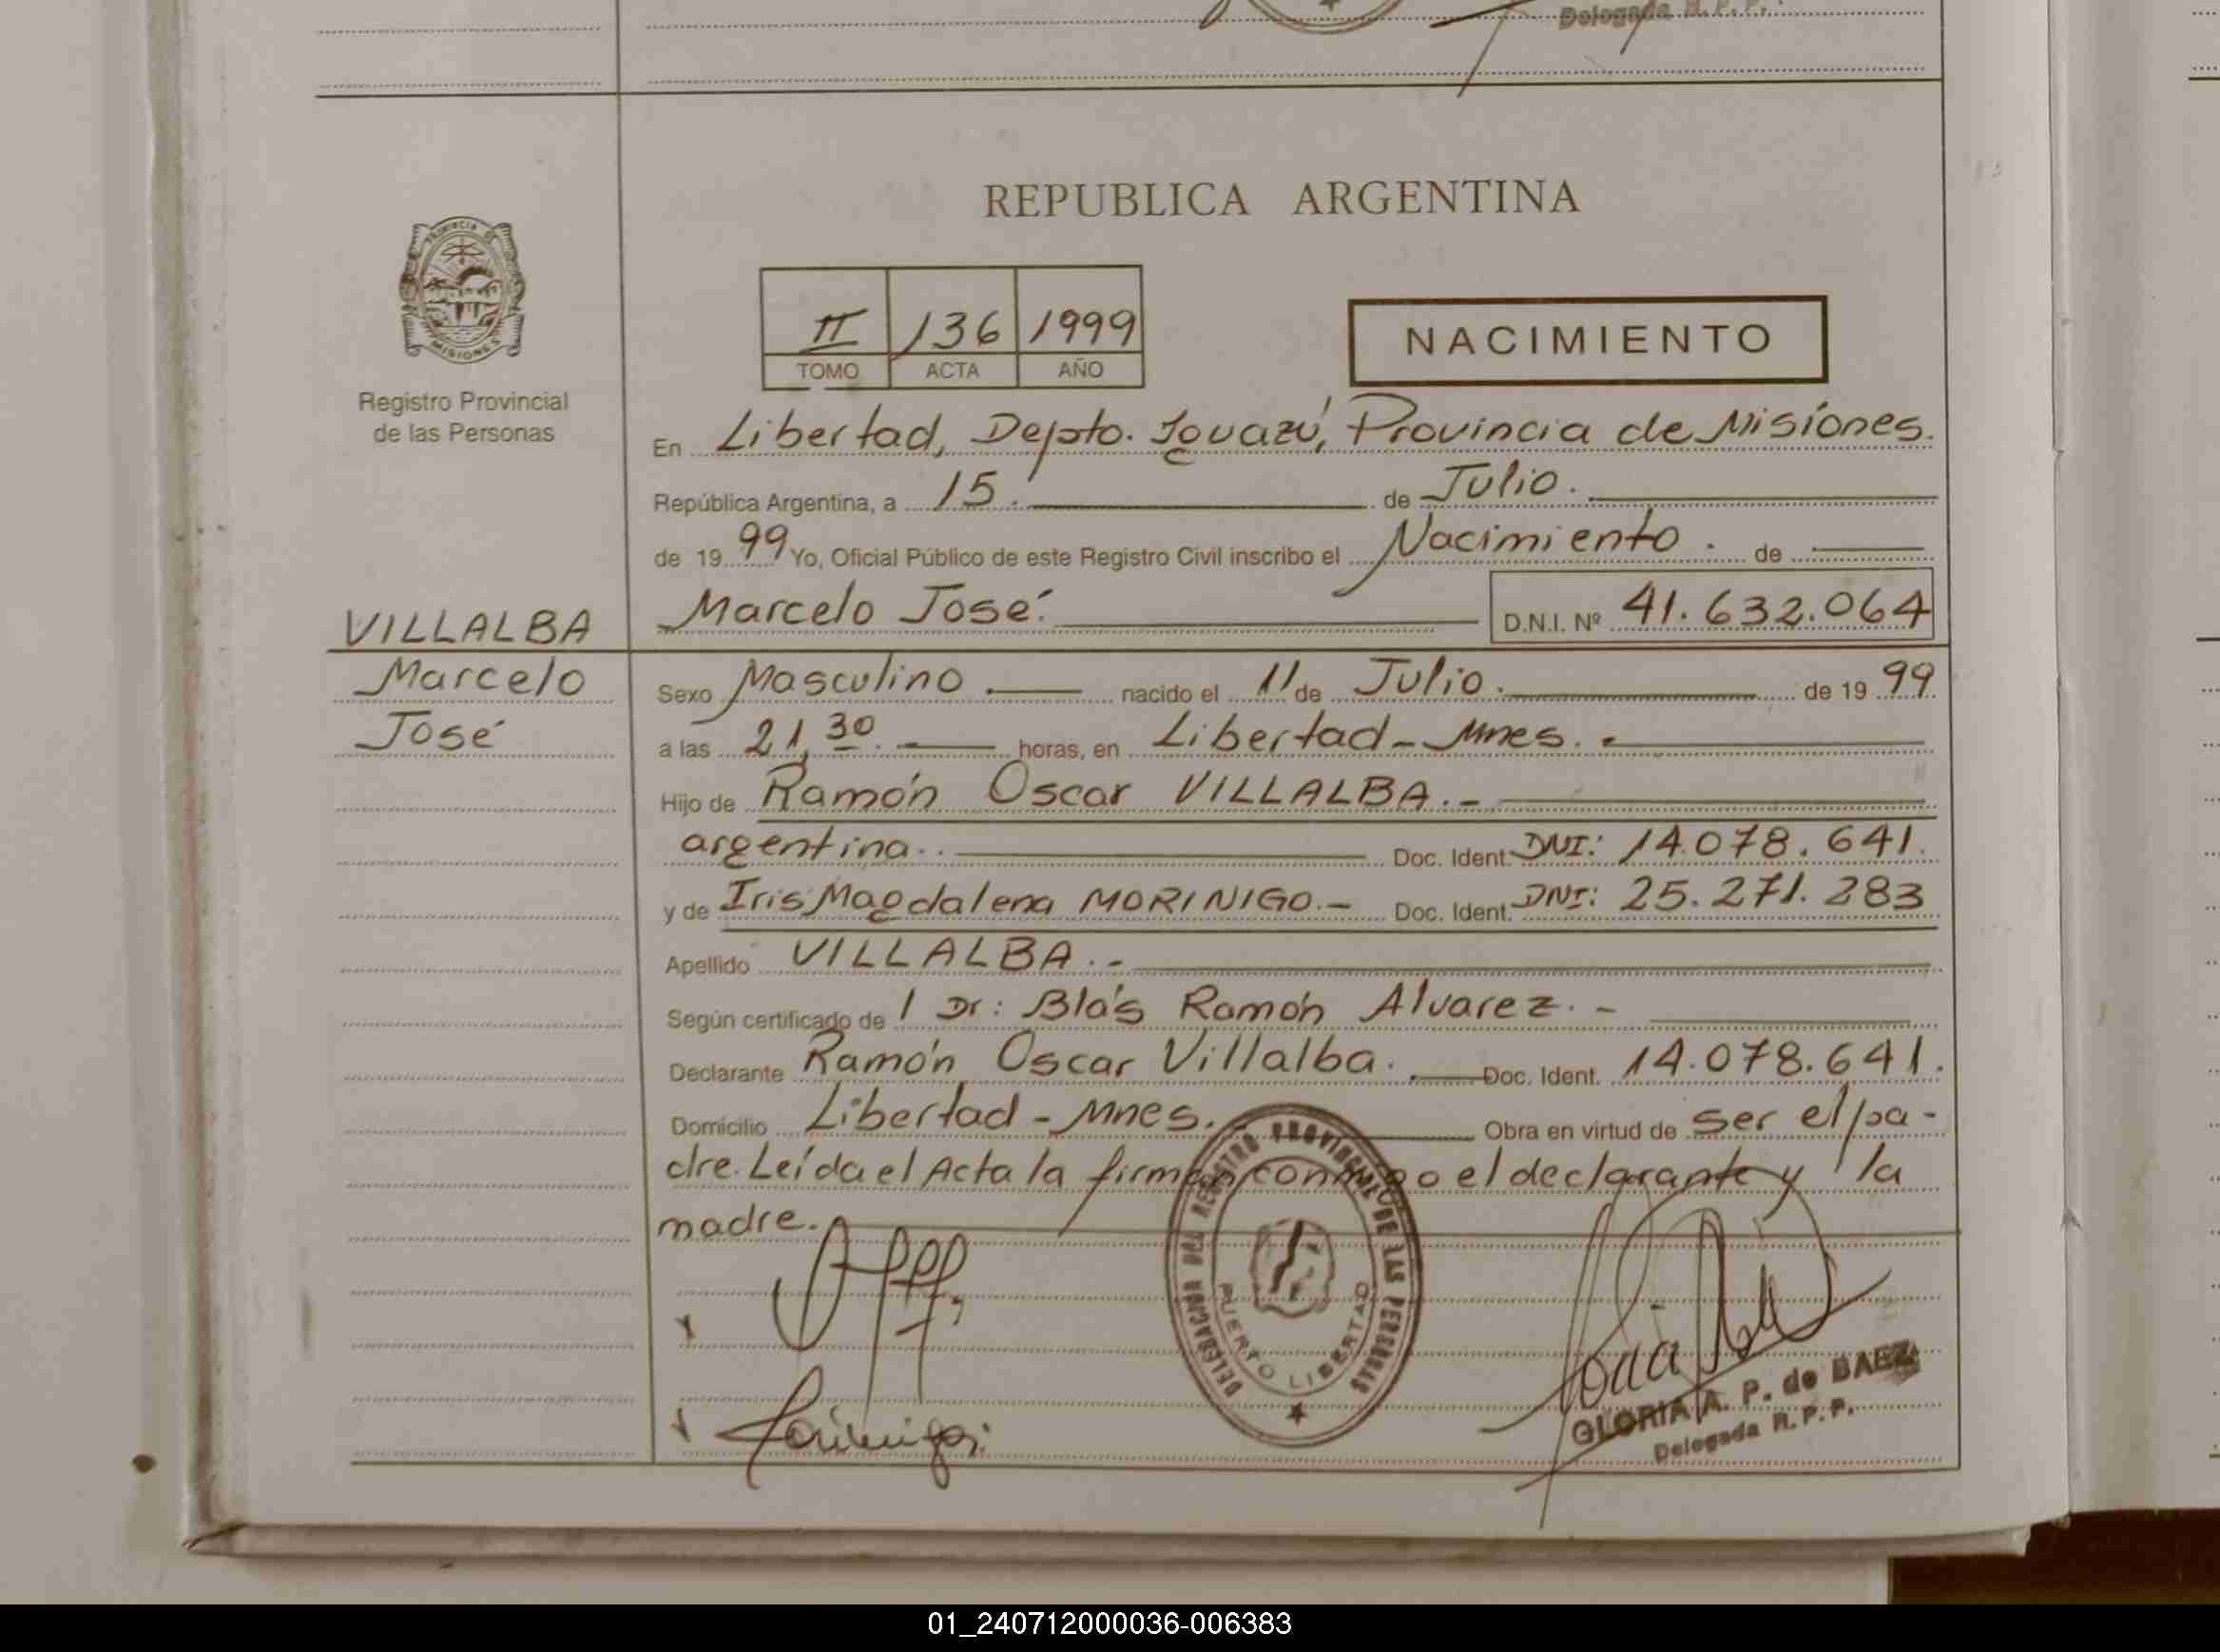 Delegada R.P.P.
REPUBLICA ARGENTINA
PROVINCIA DE
MISIONES
II 136 1999
TOMO ACTA AÑO
NACIMIENTO
Registro Provincial
de las Personas
En Libertad, Depto. Iguazú, Provincia de Misiones.
República Argentina, a 15. de Julio.
de 19 99 Yo, Oficial Público de este Registro Civil inscribo el Nacimiento. de
VILLALBA Marcelo José. D.N.I. Nº 41.632.064
Marcelo Sexo Masculino nacido el 11 de Julio. de 19 99
José a las 21,30. horas, en Libertad - Mnes. -
Hijo de Ramón Oscar VILLALBA. -
argentina.. Doc. Ident. DNI: 14.078.641.
y de Iris Magdalena MORINIGO. - Doc. Ident. DNI: 25.271.283
Apellido VILLALBA. -
Según certificado de l Dr: Blás Ramón Alvarez. -
Declarante Ramón Oscar Villalba. Doc. Ident. 14.078.641.
Domicilio Libertad - Mnes. Obra en virtud de ser el pa-
dre. Leída el Acta la firman conmigo el declarante y la
madre.
DELEGACION DEL REGISTRO PROVINCIAL DE LAS PERSONAS
PUERTO LIBERTAD
GLORIA A. P. de BAEZ
Delegada R.P.P.
01_240712000036-006383